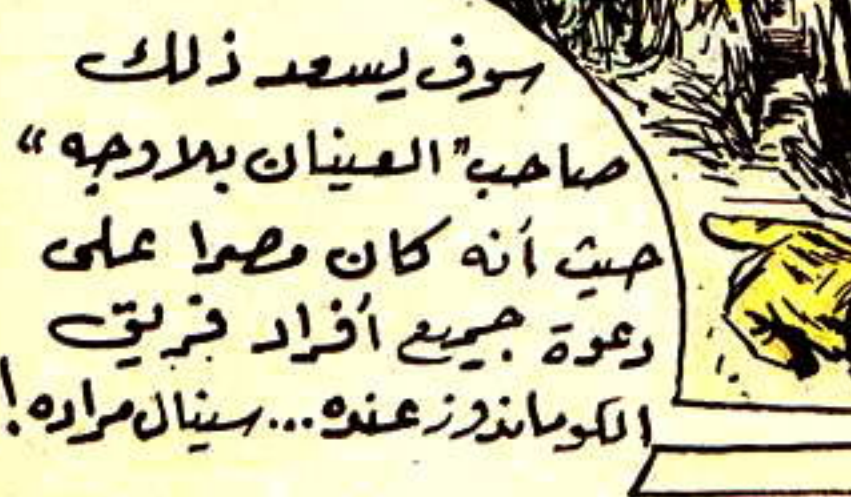 سوف يسعد ذلك
صاحب "العينان بلا وجه"
حيث أنه كان مصرا على
دعوة جميع أفراد فريق
الكوماندوز عنده... سينال مراده!